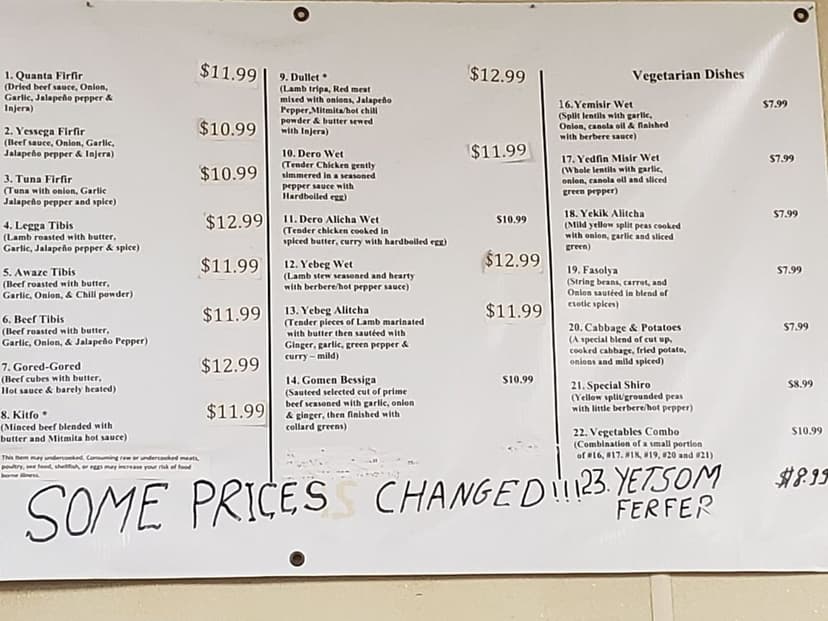 1. Quanta Firfir $11.99
(Dried beef sauce, Onion,
Garlic, Jalapeño pepper &
Injera)
2. Yessega Firfir $10.99
(Beef sauce, Onion, Garlic,
Jalapeño pepper & Injera)
3. Tuna Firfir $10.99
(Tuna with onion, Garlic
Jalapeño pepper and spice)
4. Legga Tibis $12.99
(Lamb roasted with butter,
Garlic, Jalapeño pepper & spice)
5. Awaze Tibis $11.99
(Beef roasted with butter,
Garlic, Onion, & Chili powder)
6. Beef Tibis $11.99
(Beef roasted with butter,
Garlic, Onion, & Jalapeño Pepper)
7. Gored-Gored $12.99
(Beef cubes with butter,
Hot sauce & barely heated)
8. Kitfo * $11.99
(Minced beef blended with
butter and Mitmita hot sauce)
This item may undercooked. Consuming raw or undercooked meats,
poultry, see food, shellfish, or eggs may increase your risk of food
borne illness.
9. Dullet * $12.99
(Lamb tripa, Red meat
mixed with onions, Jalapeño
Pepper,Mitmita/hot chili
powder & butter sewed
with Injera)
10. Dero Wet $11.99
(Tender Chicken gently
simmered in a seasoned
pepper sauce with
Hardboiled egg)
11. Dero Alicha Wet $10.99
(Tender chicken cooked in
spiced butter, curry with hardboiled egg)
12. Yebeg Wet $12.99
(Lamb stew seasoned and hearty
with berbere/hot pepper sauce)
13. Yebeg Alitcha $11.99
(Tender pieces of Lamb marinated
with butter then sautéed with
Ginger, garlic, green pepper &
curry – mild)
14. Gomen Bessiga $10.99
(Sauteed selected cut of prime
beef seasoned with garlic, onion
& ginger, then finished with
collard greens)
Vegetarian Dishes
16.Yemisir Wet $7.99
(Split lentils with garlic,
Onion, canola oil & finished
with berbere sauce)
17. Yedfin Misir Wet $7.99
(Whole lentils with garlic,
onion, canola oil and sliced
green pepper)
18. Yekik Alitcha $7.99
(Mild yellow split peas cooked
with onion, garlic and sliced
green)
19. Fasolya $7.99
(String beans, carrot, and
Onion sautéed in blend of
exotic spices)
20. Cabbage & Potatoes $7.99
(A special blend of cut up,
cooked cabbage, fried potato,
onions and mild spiced)
21. Special Shiro $8.99
(Yellow split/grounded peas
with little berbere/hot pepper)
22. Vegetables Combo $10.99
(Combination of a small portion
of #16, #17. #18, #19, #20 and #21)
23. YETSOM $8.99
FERFER
SOME PRICES CHANGED!!!